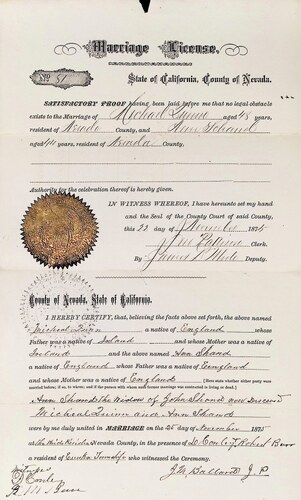 Marriage License.
No 51
State of California, County of Nevada.
SATISFACTORY PROOF having been laid before me that no legal obstacle
exists to the Marriage of Michael aged 45 years,
resident of Nevada County, and Ann Shand
aged 44 years, resident of Nevada County.
Authority for the celebration thereof is hereby given.
IN WITNESS WHEREOF, I have hereunto set my hand
and the Seal of the County Court of said County,
this 22 day of November 1875
Clerk.
By James Deputy.
County of Nevada, State of California.
I HEREBY CERTIFY, that, believing the facts above set forth, the above named
Michael a native of England whose
Father was a native of Ireland and whose Mother was a native of
Ireland and the above named Ann Shand
a native of England whose Father was a native of England
and whose Mother was a native of England
Ann Shand the Widow of John Shand now deceased
Michael and Ann Shand
were by me duly united in MARRIAGE on the 25 day of November 1875
at Nevada County, in the presence of Robert Barr
a resident of Eureka Township who witnessed the Ceremony.
Witness
J M Ballard J. P.